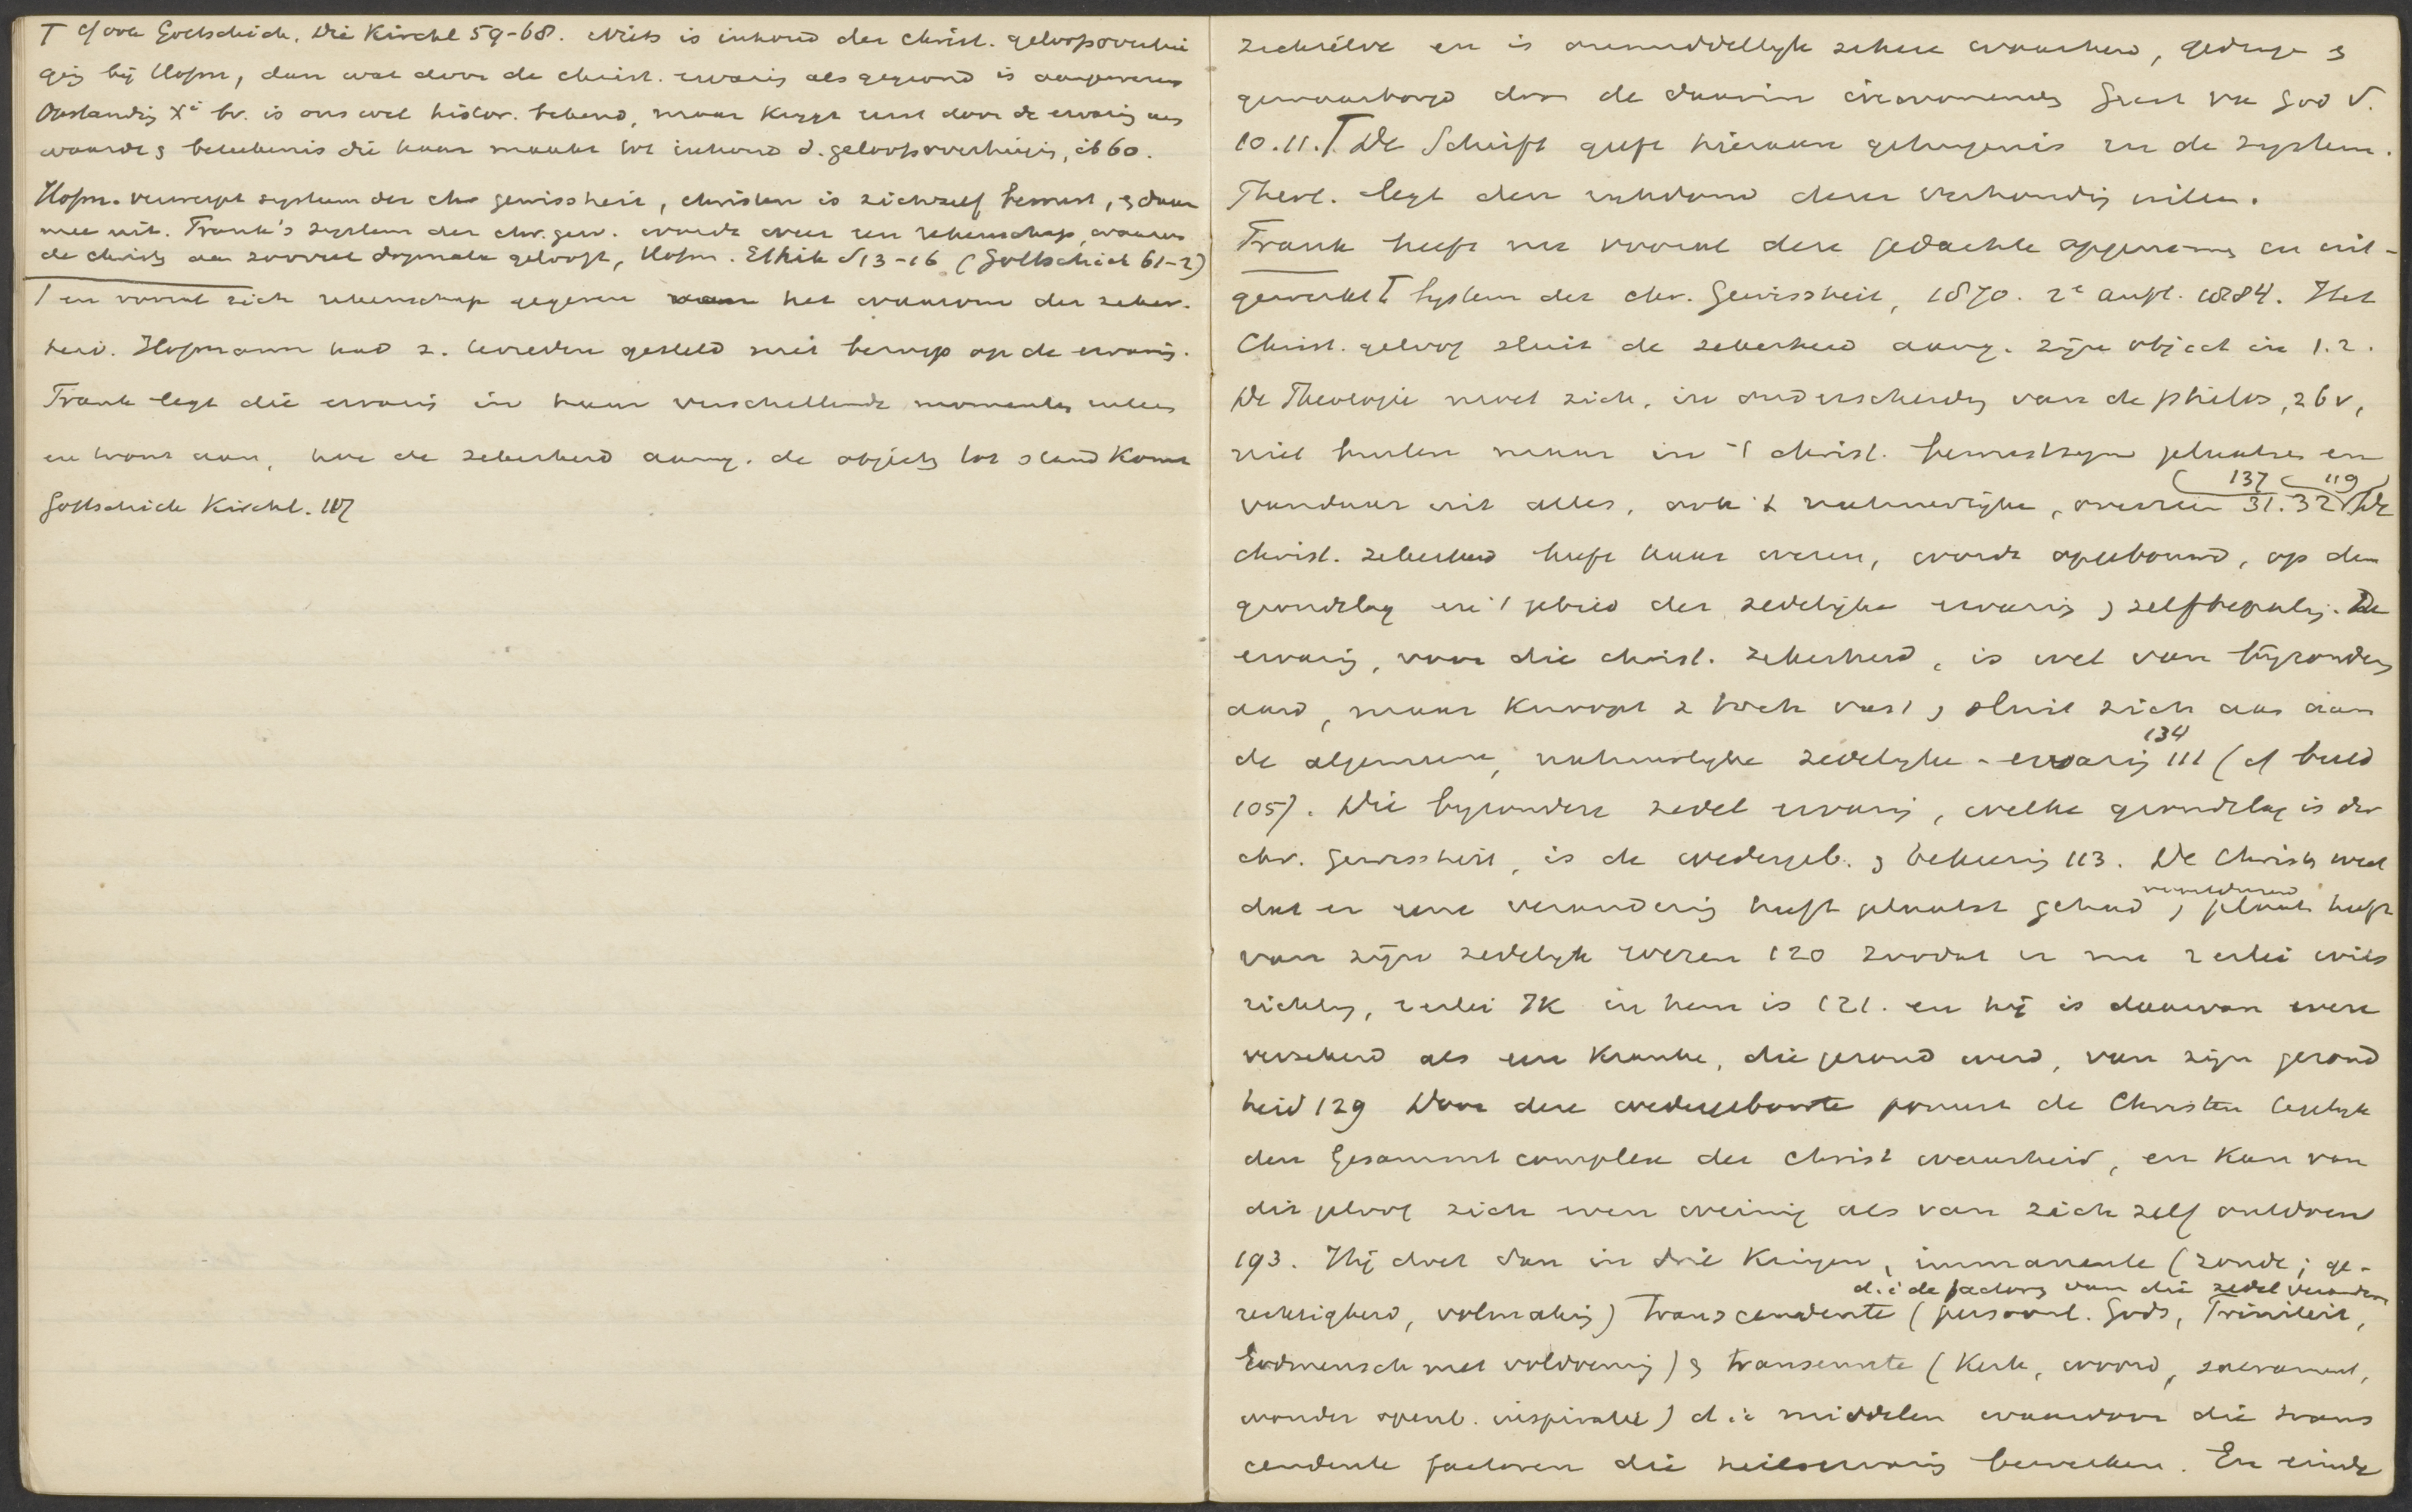 T cf ook Gottschick. Die Kirchl 59-68. Niets is inhoud der christ. geloofsovertui
ging bij Hofm, dan wat door de christ. ervaring als gegrond is aangewezen
Opstanding Xi bv. is ons wel histor. bekend, maar krygt eerst door de ervaring de
waarde & beteekenis die haar maakt tot inhoud d. geloofsovertuiging, ib 60.
Hofm. verwerpt systeem der chr gewissheit, christen is zichzelf bewust, & daar
mee uit. Frank's system der chr. gew. wordt weer een rekenschap, waarom
de christen aan zooveel dogmata gelooft, Hofm. Ethik S 13-16 (Gottschick 61-2)
T en vooral zich rekenschap gegeven van het waarom der zeker-
heid. Hofmann had z. tevreden gesteld met beroep op de ervaring.
Frank legt die ervaring in haar verschillende momenten uiteen
en toont aan, hoe de zekerheid aang. de objecten tot stand komt
Gottschick Kirchl. 117
zichzelve en is onmiddellyk zekere waarheid, gedragen &
gewaarborgd door de daarin inwonenden Geest van God V.
10.11. T De Schrift geeft hiervan getuigenis en de system.
Theol. legt den inhoud dezer verkonding uiteen.
Frank heeft nu vooral deze gedachte opgenomen en uit-
gewerkt T System der chr. Gewissheit, 1870. 2e aufl. 1884. Het
Christ. geloof sluit de zekerheid aang. zijn object in 1.2.
De Theologie moet zich, in onderscheiding van de philos, 26 v,
niet buiten maar in 't christ. bewustzyn plaatsen en
137 119
vandaar uit alles, ook 't natuurlijke, overzien 31.32 De
christ. zekerheid heeft haar wezen, wordt opgebouwd, op den
grondslag en 't gebied der zedelijke ervaring & zelfbepaling. De
ervaring, voor die christ. zekerheid, is wel van byzonderen
aard, maar knoopt z toch vast & sluit zich aan aan
134
de algemeene, natuurlyke zedelyke - ervaring 111 (cf beeld
105). Die byzondere zedel ervaring, welke grondslag is der
chr. Gewissheit, is de wedergeb. & bekeering 113. De Christen weet
voortdurend
dat er eene verandering heeft plaatst gehad & plaats heeft
van zijn zedelyk wezen 120 zoodat er nu 2 erlei wils
richting, 2 erlei IK in hem is 121. en hij is daarvan even
verzekerd als een kranke, die gezond werd, van zijn gezond
heid 129 Door deze wedergeboorte poneert de Christen tegelyk
den Gesammtcomplex der Christ waarheid, en kan van
dit geloof zich even weinig als van zich zelf ontdoen
193. Hij doet dan in drie kringen, immanente (zonde; ge-
d.i de factoren van die zedel verander
rechtigheid, volmaking) transcendente (persoonl. Gods, Triniteit,
Godmensch met voldoening) & transeunte (kerk, woord, sacrament,
wonder openb. inspiratie) d.i. middelen waardoor die trans
cendente factoren die heilservaring bewerken. En einde